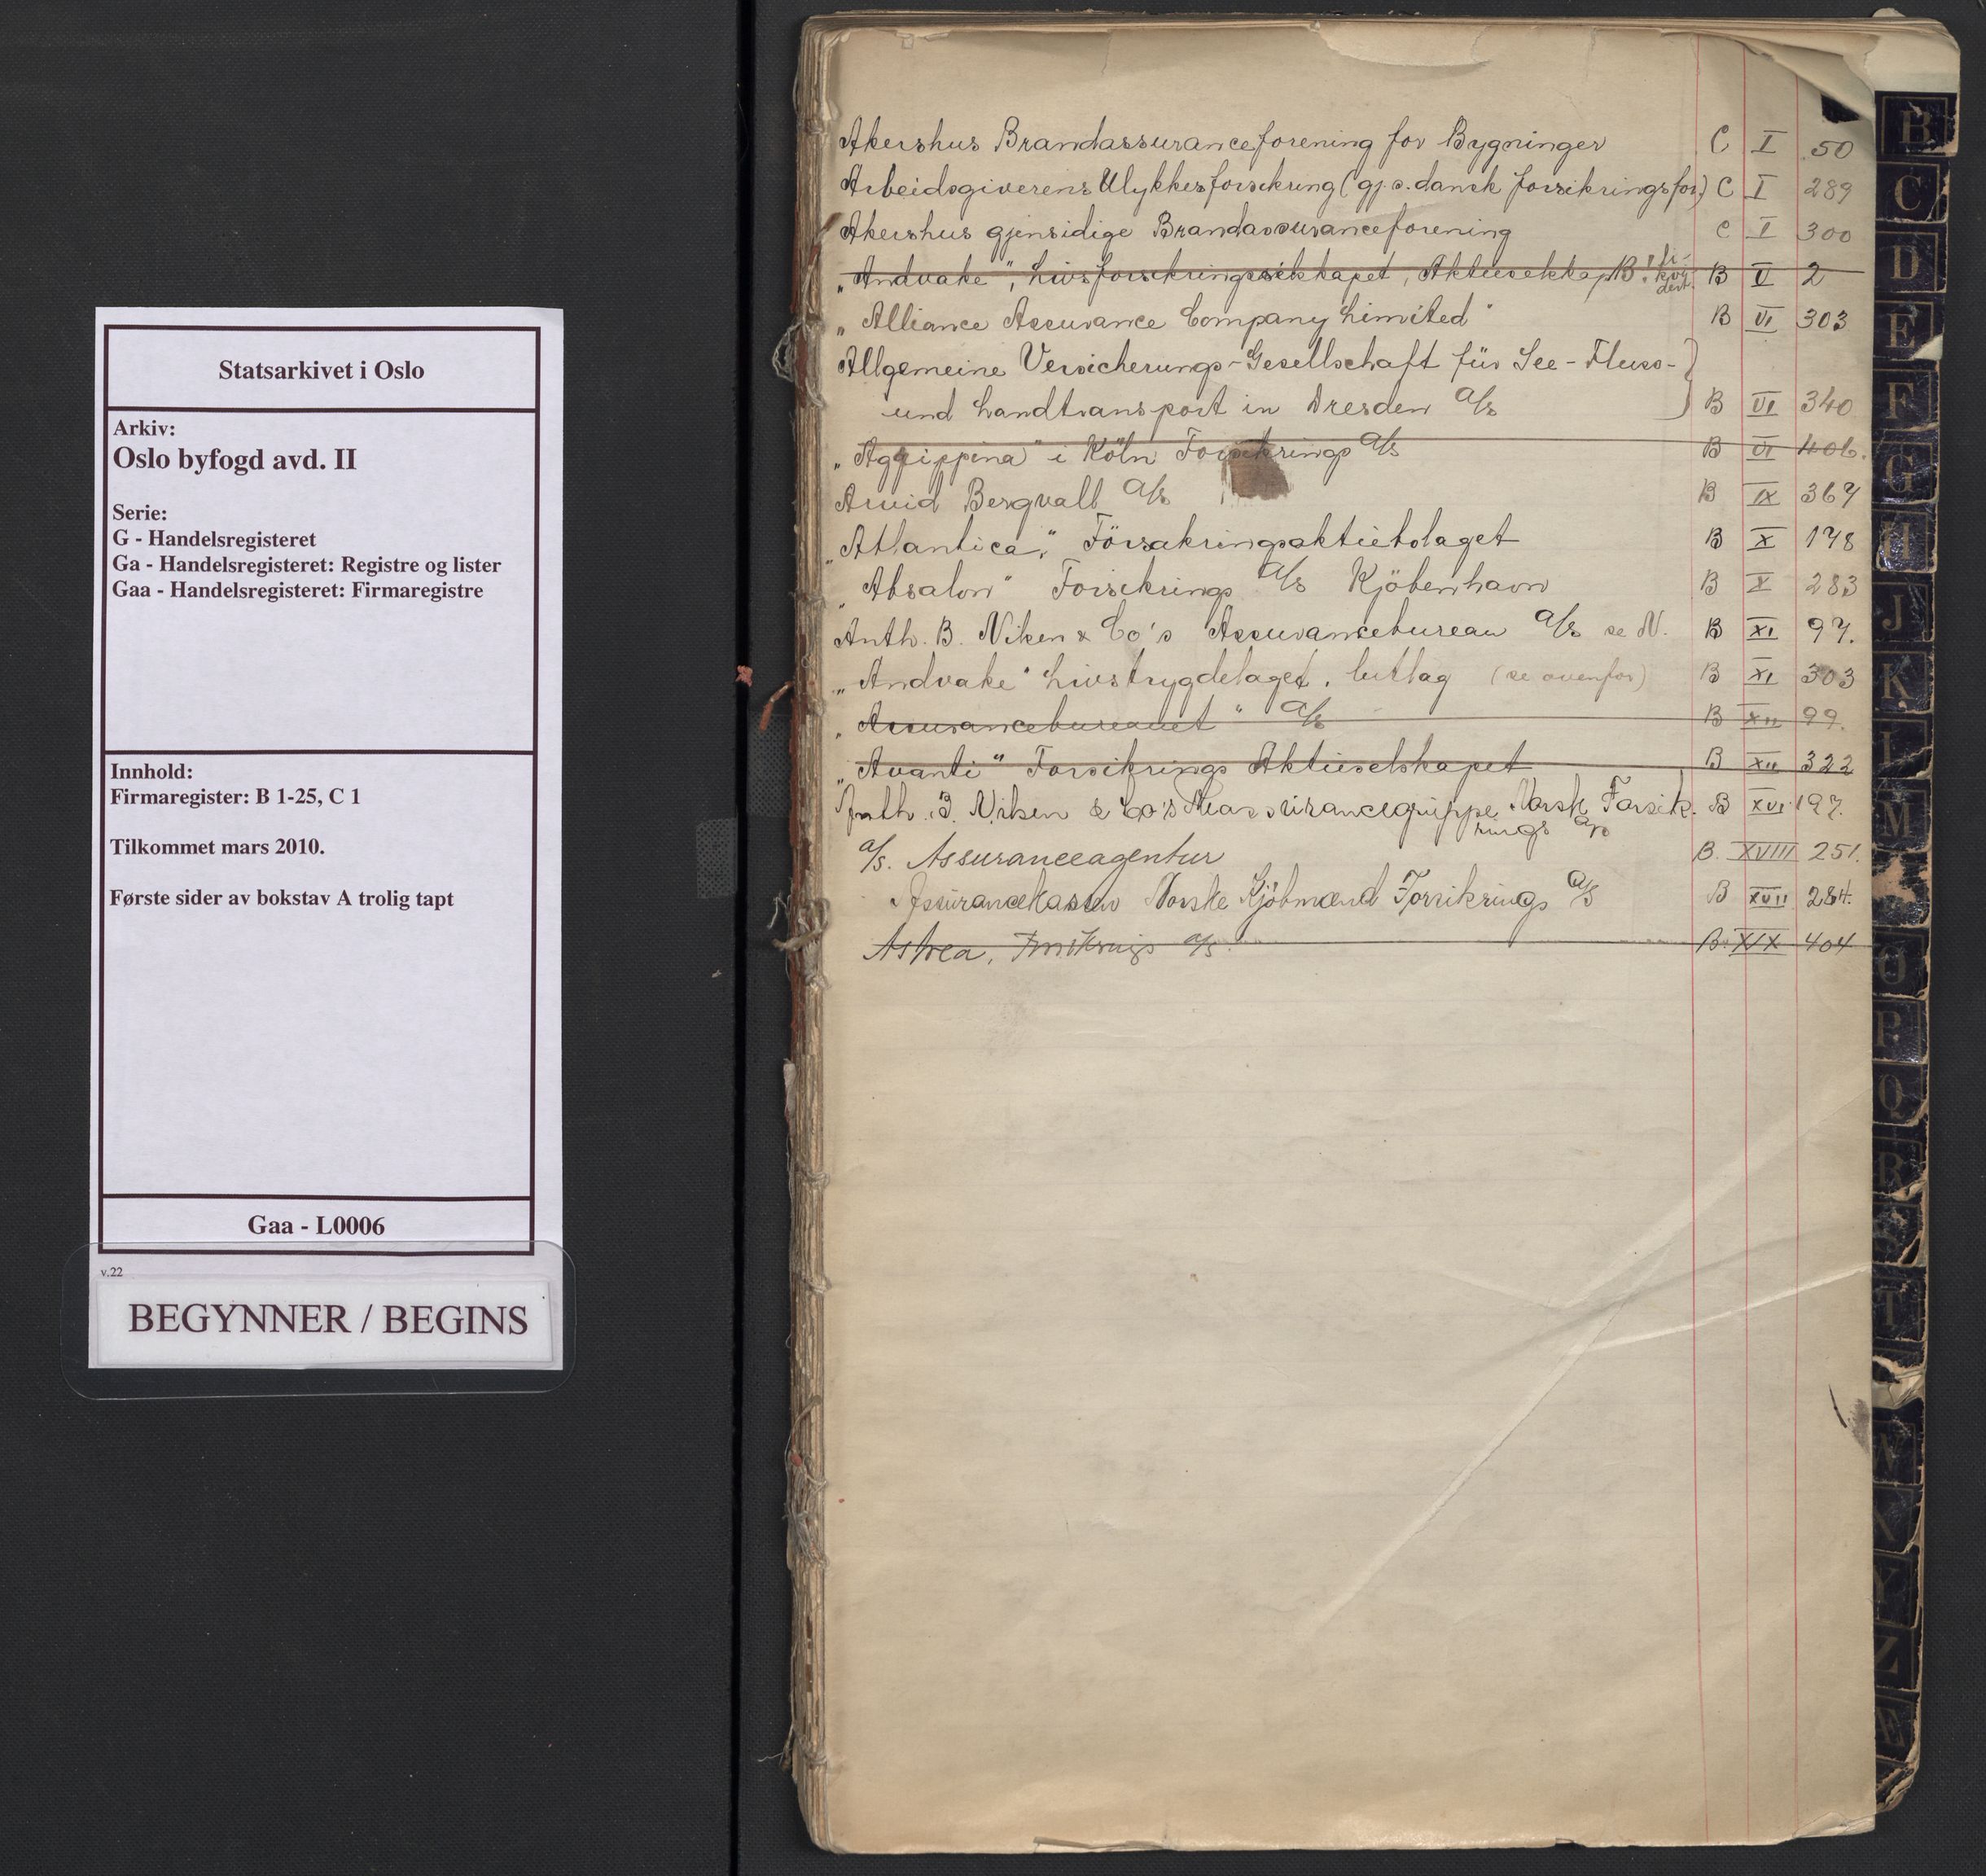 Statsarkivet i Oslo
Arkiv:
Oslo byfogd avd. II
Serie:
G - Handelsregisteret
Ga - Handelsregisteret: Registre og lister
Gaa - Handelsregisteret: Firmaregistre
Innhold:
Firmaregister: B 1-25, C 1
Tilkommet mars 2010.
Første sider av bokstav A trolig tapt
Gaa - L0006
v.22
BEGYNNER / BEGINS
Akershus Brandassuranceforening for Bygninger C I 50
Arbeidsgiverens Ulykkesforsikring (gj. s. dansk forsikringsfor) C I 289
Akershus gjensidige Brandassuranceforening C I 300
„Andvake", Livsforsikringsselskapet, Aktieselskap B V 2
„Alliance Assurance Company Limited" B VI 303
Allgemeine Versicherungs-Gesellschaft für See-Fluss-
und Landtransport in Dresden A/S B VI 340
„Agrippina" i Köln Forsikrings A/S B VI 406.
Arvid Bergvall A/S B IX 367
„Atlantica," Försäkringsaktiebolaget B X 178
„Absalon" Forsikrings A/S Kjöbenhavn B X 283
Anth. B. Nilsen & Co's Assurancebureau A/S se N. B XI 97.
„Andvake" Livstrygdelaget, lutlag (se ovenfor) B XI 303
„Assurancebureauet" A/S B XII 99.
„Avanti" Forsikrings Aktieselskapet B XII 322
Anth. B. Nilsen & Co's Reassurancegruppe Norsk Forsik. B XVI 197.
rings A/S
A/S. Assuranceagentur B. XVIII 251.
Assurancekassen Norske Kjöbmænd Forsikrings A/S B XVII 284.
Astrea, Forsikrings A/S. B. XIX 404
B
C
D
E
F
G
H
J
K
L
M
O
P
Q
R
S
T
X
Y
Z
Æ